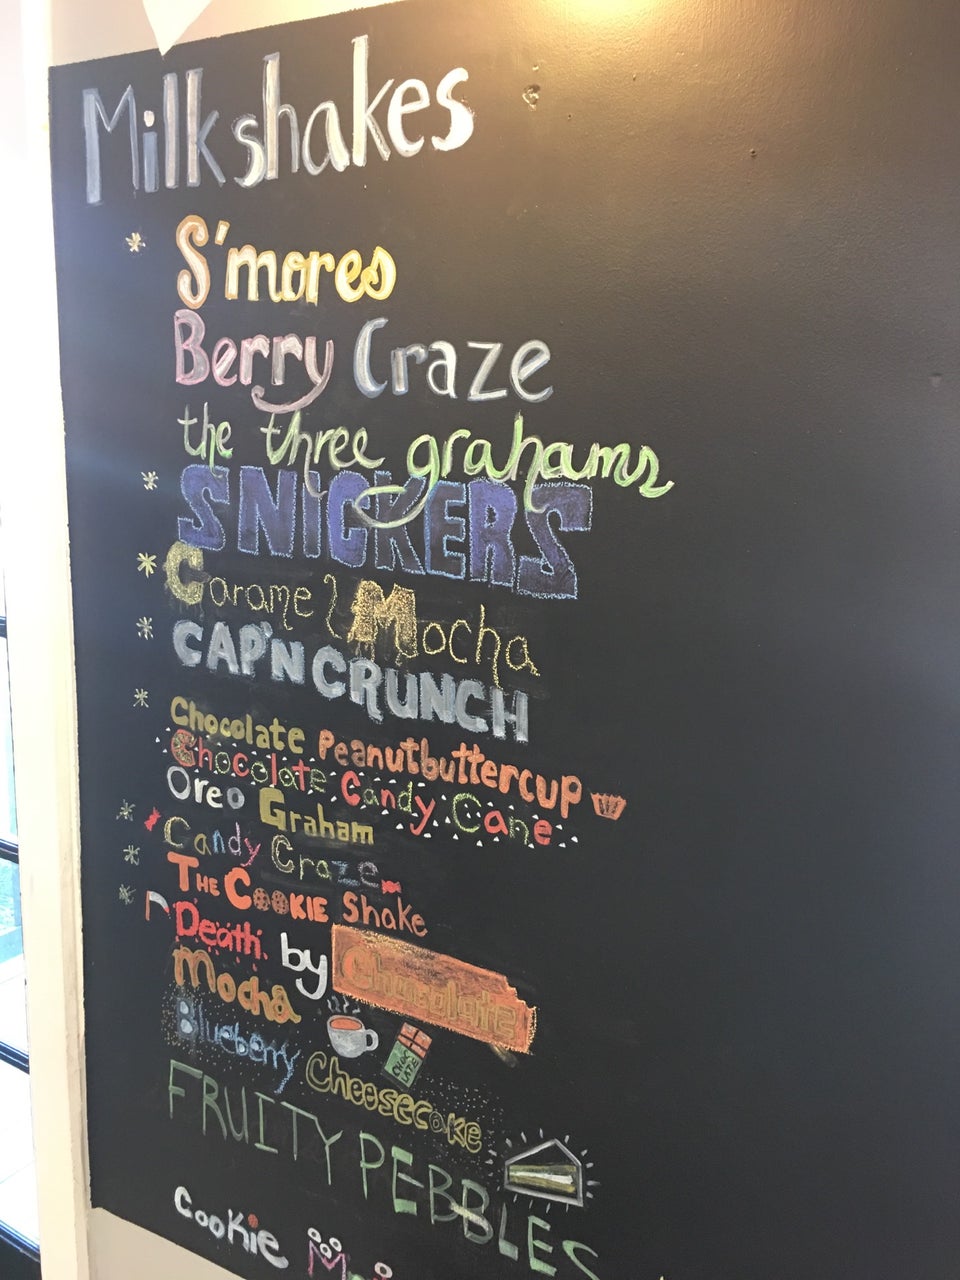 Milkshakes
S'mores
Berry Craze
the three grahams
SNICKERS
Caramel Mocha
CAP'N CRUNCH
Chocolate Peanutbuttercup
Chocolate Candy Cane
Oreo Graham
Candy Craze
THE COOKIE Shake
Death by Chocolate
Mocha
CHOC LATE
Blueberry Cheesecake
FRUITY PEBBLES
Cookie